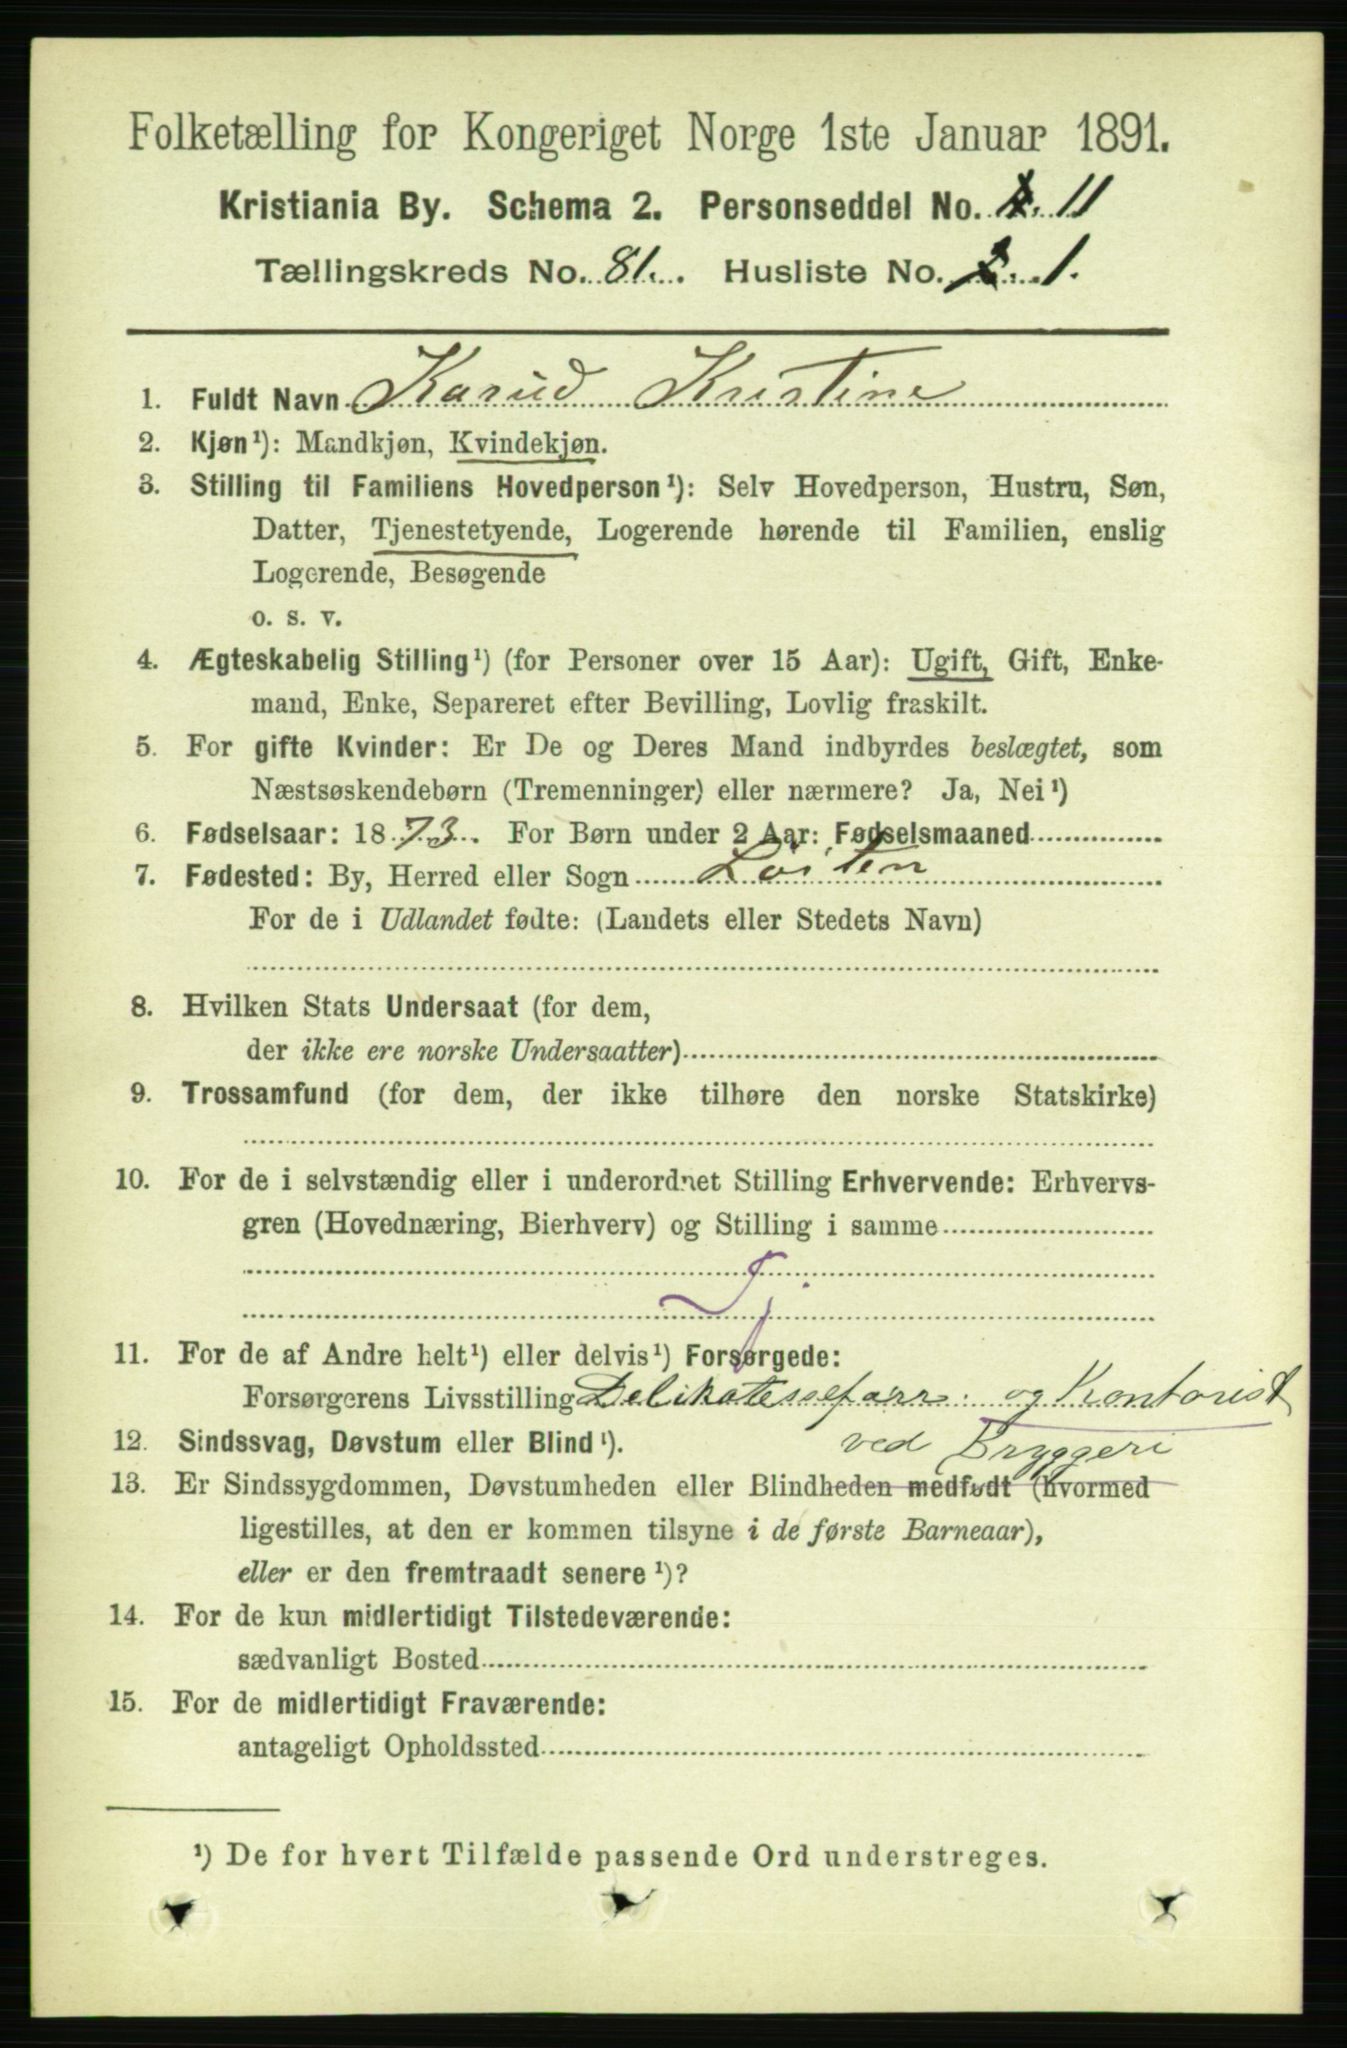 Folketælling for Kongeriget Norge 1ste Januar 1891.
Kristiania By. Schema 2. Personseddel No. 11
Tællingskreds No. 81. Husliste No. 1.
1. Fuldt Navn Karud Kristine
2. Kjøn¹): Mandkjøn, Kvindekjøn.
3. Stilling til Familiens Hovedperson¹): Selv Hovedperson, Hustru, Søn,
Datter, Tjenestetyende, Logerende hørende til Familien, enslig
Logerende, Besøgende
o. s. v.
4. Ægteskabelig Stilling¹) (for Personer over 15 Aar): Ugift, Gift, Enke-
mand, Enke, Separeret efter Bevilling, Lovlig fraskilt.
5. For gifte Kvinder: Er De og Deres Mand indbyrdes beslægtet, som
Næstsøskendebørn (Tremenninger) eller nærmere? Ja, Nei¹)
6. Fødselsaar: 1873. For Børn under 2 Aar: Fødselsmaaned
7. Fødested: By, Herred eller Sogn Löiten
For de i Udlandet fødte: (Landets eller Stedets Navn)
8. Hvilken Stats Undersaat (for dem,
der ikke ere norske Undersaatter)
9. Trossamfund (for dem, der ikke tilhøre den norske Statskirke)
10. For de i selvstændig eller i underordnet Stilling Erhvervende: Erhvervs-
gren (Hovednæring, Bierhverv) og Stilling i samme
Tj.
11. For de af Andre helt¹) eller delvis¹) Forsørgede:
Forsørgerens Livsstilling Delikatesseforr: og Kontorist
12. Sindssvag, Døvstum eller Blind¹). ved Bryggeri
13. Er Sindssygdommen, Døvstumheden eller Blindheden medfødt (hvormed
ligestilles, at den er kommen tilsyne i de første Barneaar),
eller er den fremtraadt senere¹)?
14. For de kun midlertidigt Tilstedeværende:
sædvanligt Bosted
15. For de midlertidigt Fraværende:
antageligt Opholdssted
¹) De for hvert Tilfælde passende Ord understreges.